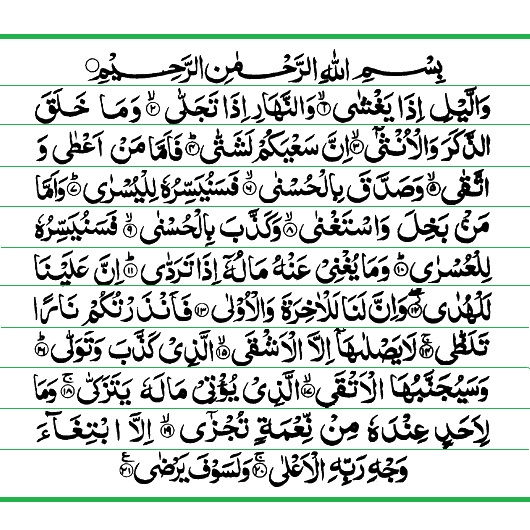 بِسْمِ اللّٰهِ الرَّحْمٰنِ الرَّحِيْمِ ○
وَالَّيْلِ اِذَا يَغْشٰى ۙ﴿۱﴾ وَالنَّهَارِ اِذَا تَجَلّٰى ۙ﴿۲﴾ وَمَا خَلَقَ
الذَّكَرَ وَالْاُنْثٰىٓ ۙ﴿۳﴾ اِنَّ سَعْيَكُمْ لَشَتّٰى ؕ﴿۴﴾ فَاَمَّا مَنْ اَعْطٰى وَ
اتَّقٰى ۙ﴿۵﴾ وَصَدَّقَ بِالْحُسْنٰى ۙ﴿۶﴾ فَسَنُيَسِّرُهٗ لِلْيُسْرٰى ؕ﴿۷﴾ وَاَمَّا
مَنْۢ بَخِلَ وَاسْتَغْنٰى ۙ﴿۸﴾ وَكَذَّبَ بِالْحُسْنٰى ۙ﴿۹﴾ فَسَنُيَسِّرُهٗ
لِلْعُسْرٰى ؕ﴿۱۰﴾ وَمَا يُغْنِىْ عَنْهُ مَالُهٗٓ اِذَا تَرَدّٰى ؕ﴿۱۱﴾ اِنَّ عَلَيْنَا
لَلْهُدٰى ۖ﴿۱۲﴾ وَاِنَّ لَنَا لَلْاٰخِرَةَ وَالْاُوْلٰى ﴿۱۳﴾ فَاَنْذَرْتُكُمْ نَارًا
تَلَظّٰى ۚ﴿۱۴﴾ لَا يَصْلٰىهَاۤ اِلَّا الْاَشْقَى ۙ﴿۱۵﴾ الَّذِىْ كَذَّبَ وَتَوَلّٰى ؕ﴿۱۶﴾
وَسَيُجَنَّبُهَا الْاَتْقَى ۙ﴿۱۷﴾ الَّذِىْ يُؤْتِىْ مَالَهٗ يَتَزَكّٰى ۚ﴿۱۸﴾ وَمَا
لِاَحَدٍ عِنْدَهٗ مِنْ نِّعْمَةٍ تُجْزٰٓى ۙ﴿۱۹﴾ اِلَّا ابْتِغَآءَ
وَجْهِ رَبِّهِ الْاَعْلٰى ۚ﴿۲۰﴾ وَلَسَوْفَ يَرْضٰى ﴿۲۱﴾